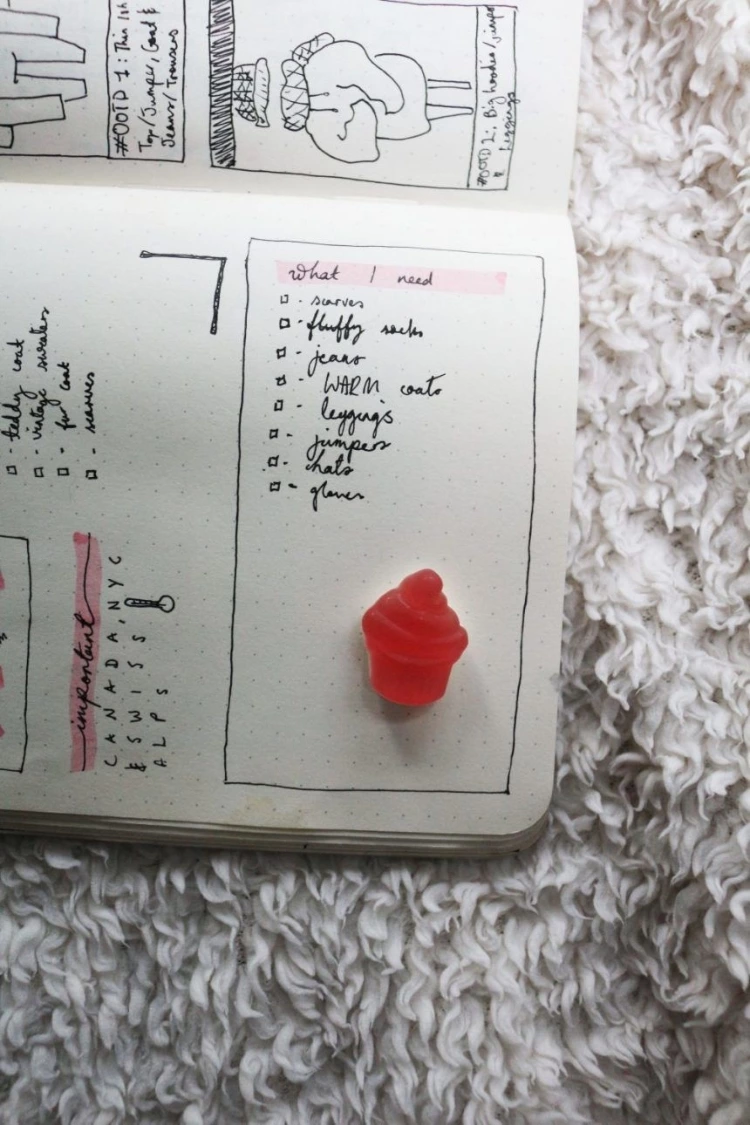 #OOTD 1: Thin
Top/Jumper, Coat &
Jeans/Trousers
#OOTD 2: Big hoodie/Jumper
& Leggings
what I need
- scarves
- fluffy socks
- jeans
- WARM coats
- leggings
- jumpers
- hats
- gloves
- teddy coat
- vintage sweaters
- fur coat
- scarves
important
CANADA, NYC
& SWISS
ALPS